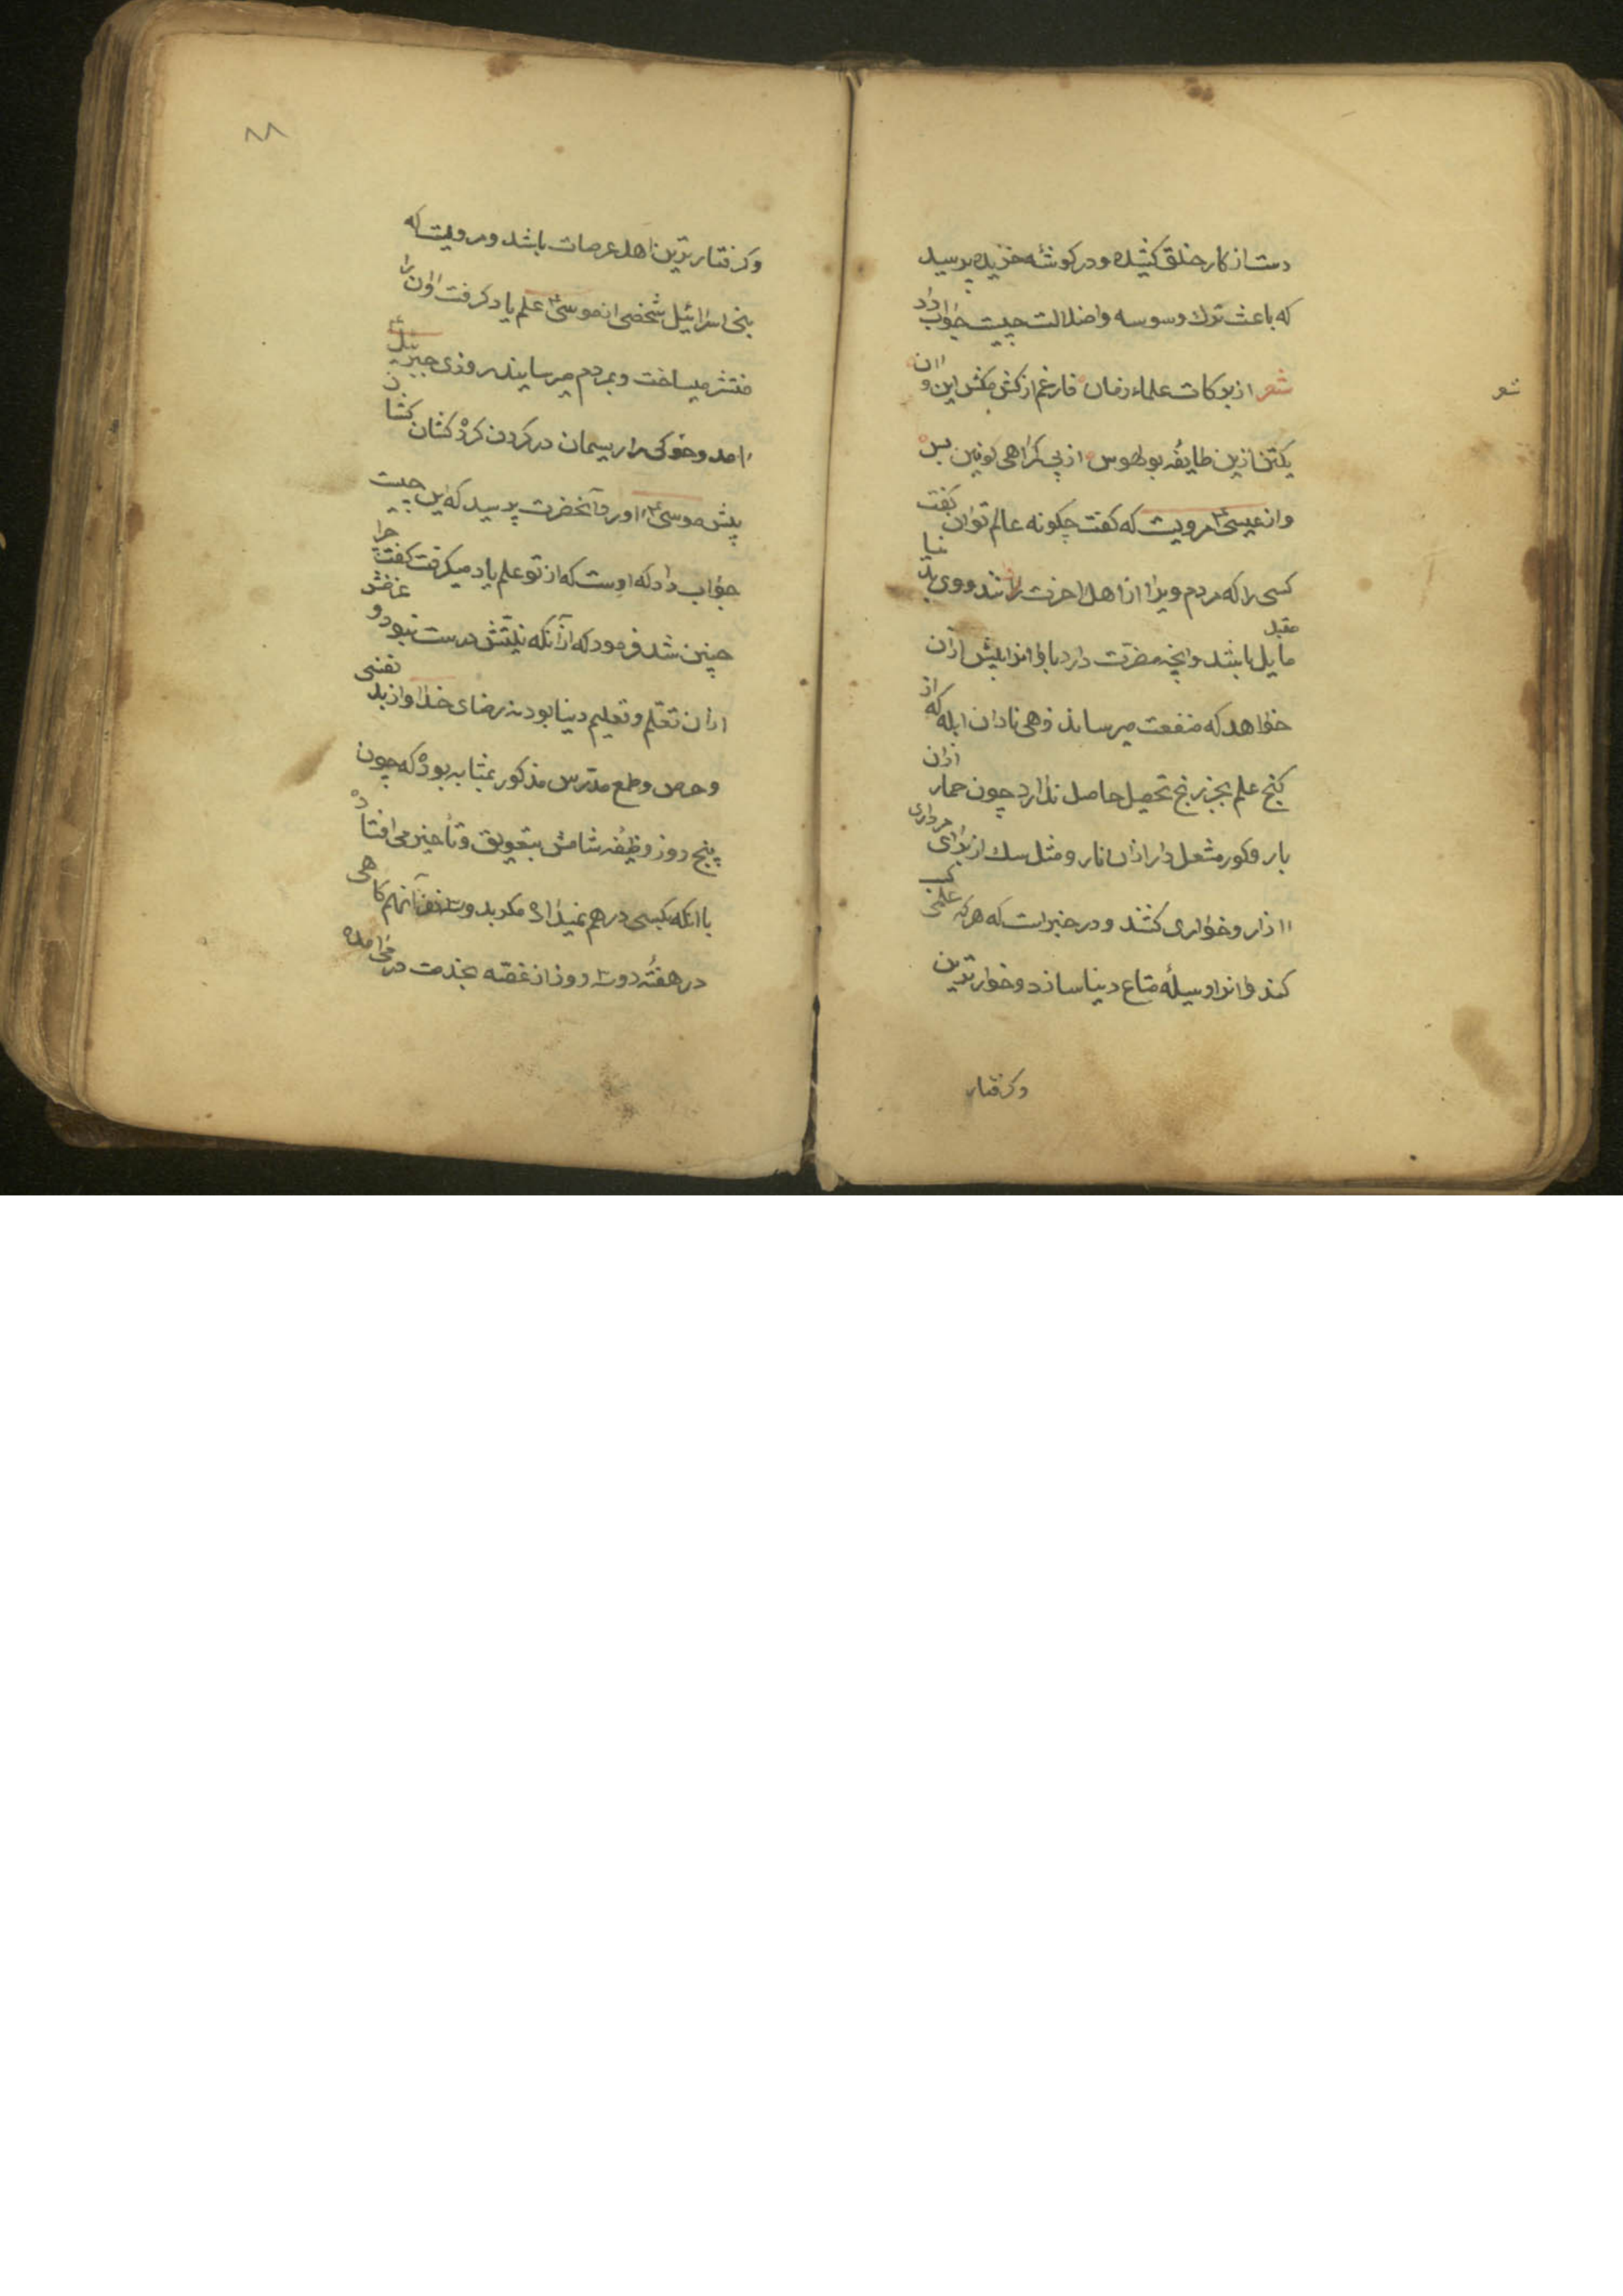 دست از کار خلق کشیده و در کوشهٔ خزیده پرسید
که باعث ترك وسوسه و اضلالت چیست جواب داد
شعر از برکات علماء زمان فارغم از کش مکش این و ان
شعر
یکتن ازین طایفهٔ بو لهوس از پی کراهی کونین بس
و از عیسی ع مرویست که کفت چکونه عالم توان کفت
کسی را که مردم ویرا از اهل اخرت دانند و وی بدنیا
مایل باشد و انچه مضرت دارد باو انرا پیش از ان
خواهد که منفعت میرساند زهی نادان ابله که از
کنج علم بجز رنج تحصیل حاصل ندارد چون حمار از ان
بار و کور مشعل دار از ان نار و مثل سك از برای مرداری
ازار و خواری کشند و در خبر است که هر که علمی کسب
کند و انرا وسیلهٔ متاع دنیا سازد و خوار ترین
وکرفتار
٨٨
وکرفتار ترین اهل عرصات باشد و مرویست که
بنی اسرائیل شخصی از موسی ع علم یاد کرفت او ان را
منتشر میساخت و بمردم میرسانید روزی جبرئیل ع
امد و خوکی را ریسمان در کردن کرده کشان کشان
پیش موسی ع اورد آنحضرت پرسید که این چیست
جواب داد که اوست که از تو علم یاد میکرفت کفت چرا
چنین شد فرمود که از آنکه نیتش درست نبود و غرضش
از ان تعلم و تعلیم دنیا بود نه رضای خدا و از بد نفسی
و حرص و طمع مدرس مذکور بمثابه بود که چون
پنج روز وظیفه شامش بتعویق و تأخیر می افتاد
با انکه بکسی درهم نمیداد مکر بدو سه آنهم کاهی
در هفتهٔ دو سه روز از غصه بخدمت در می امد